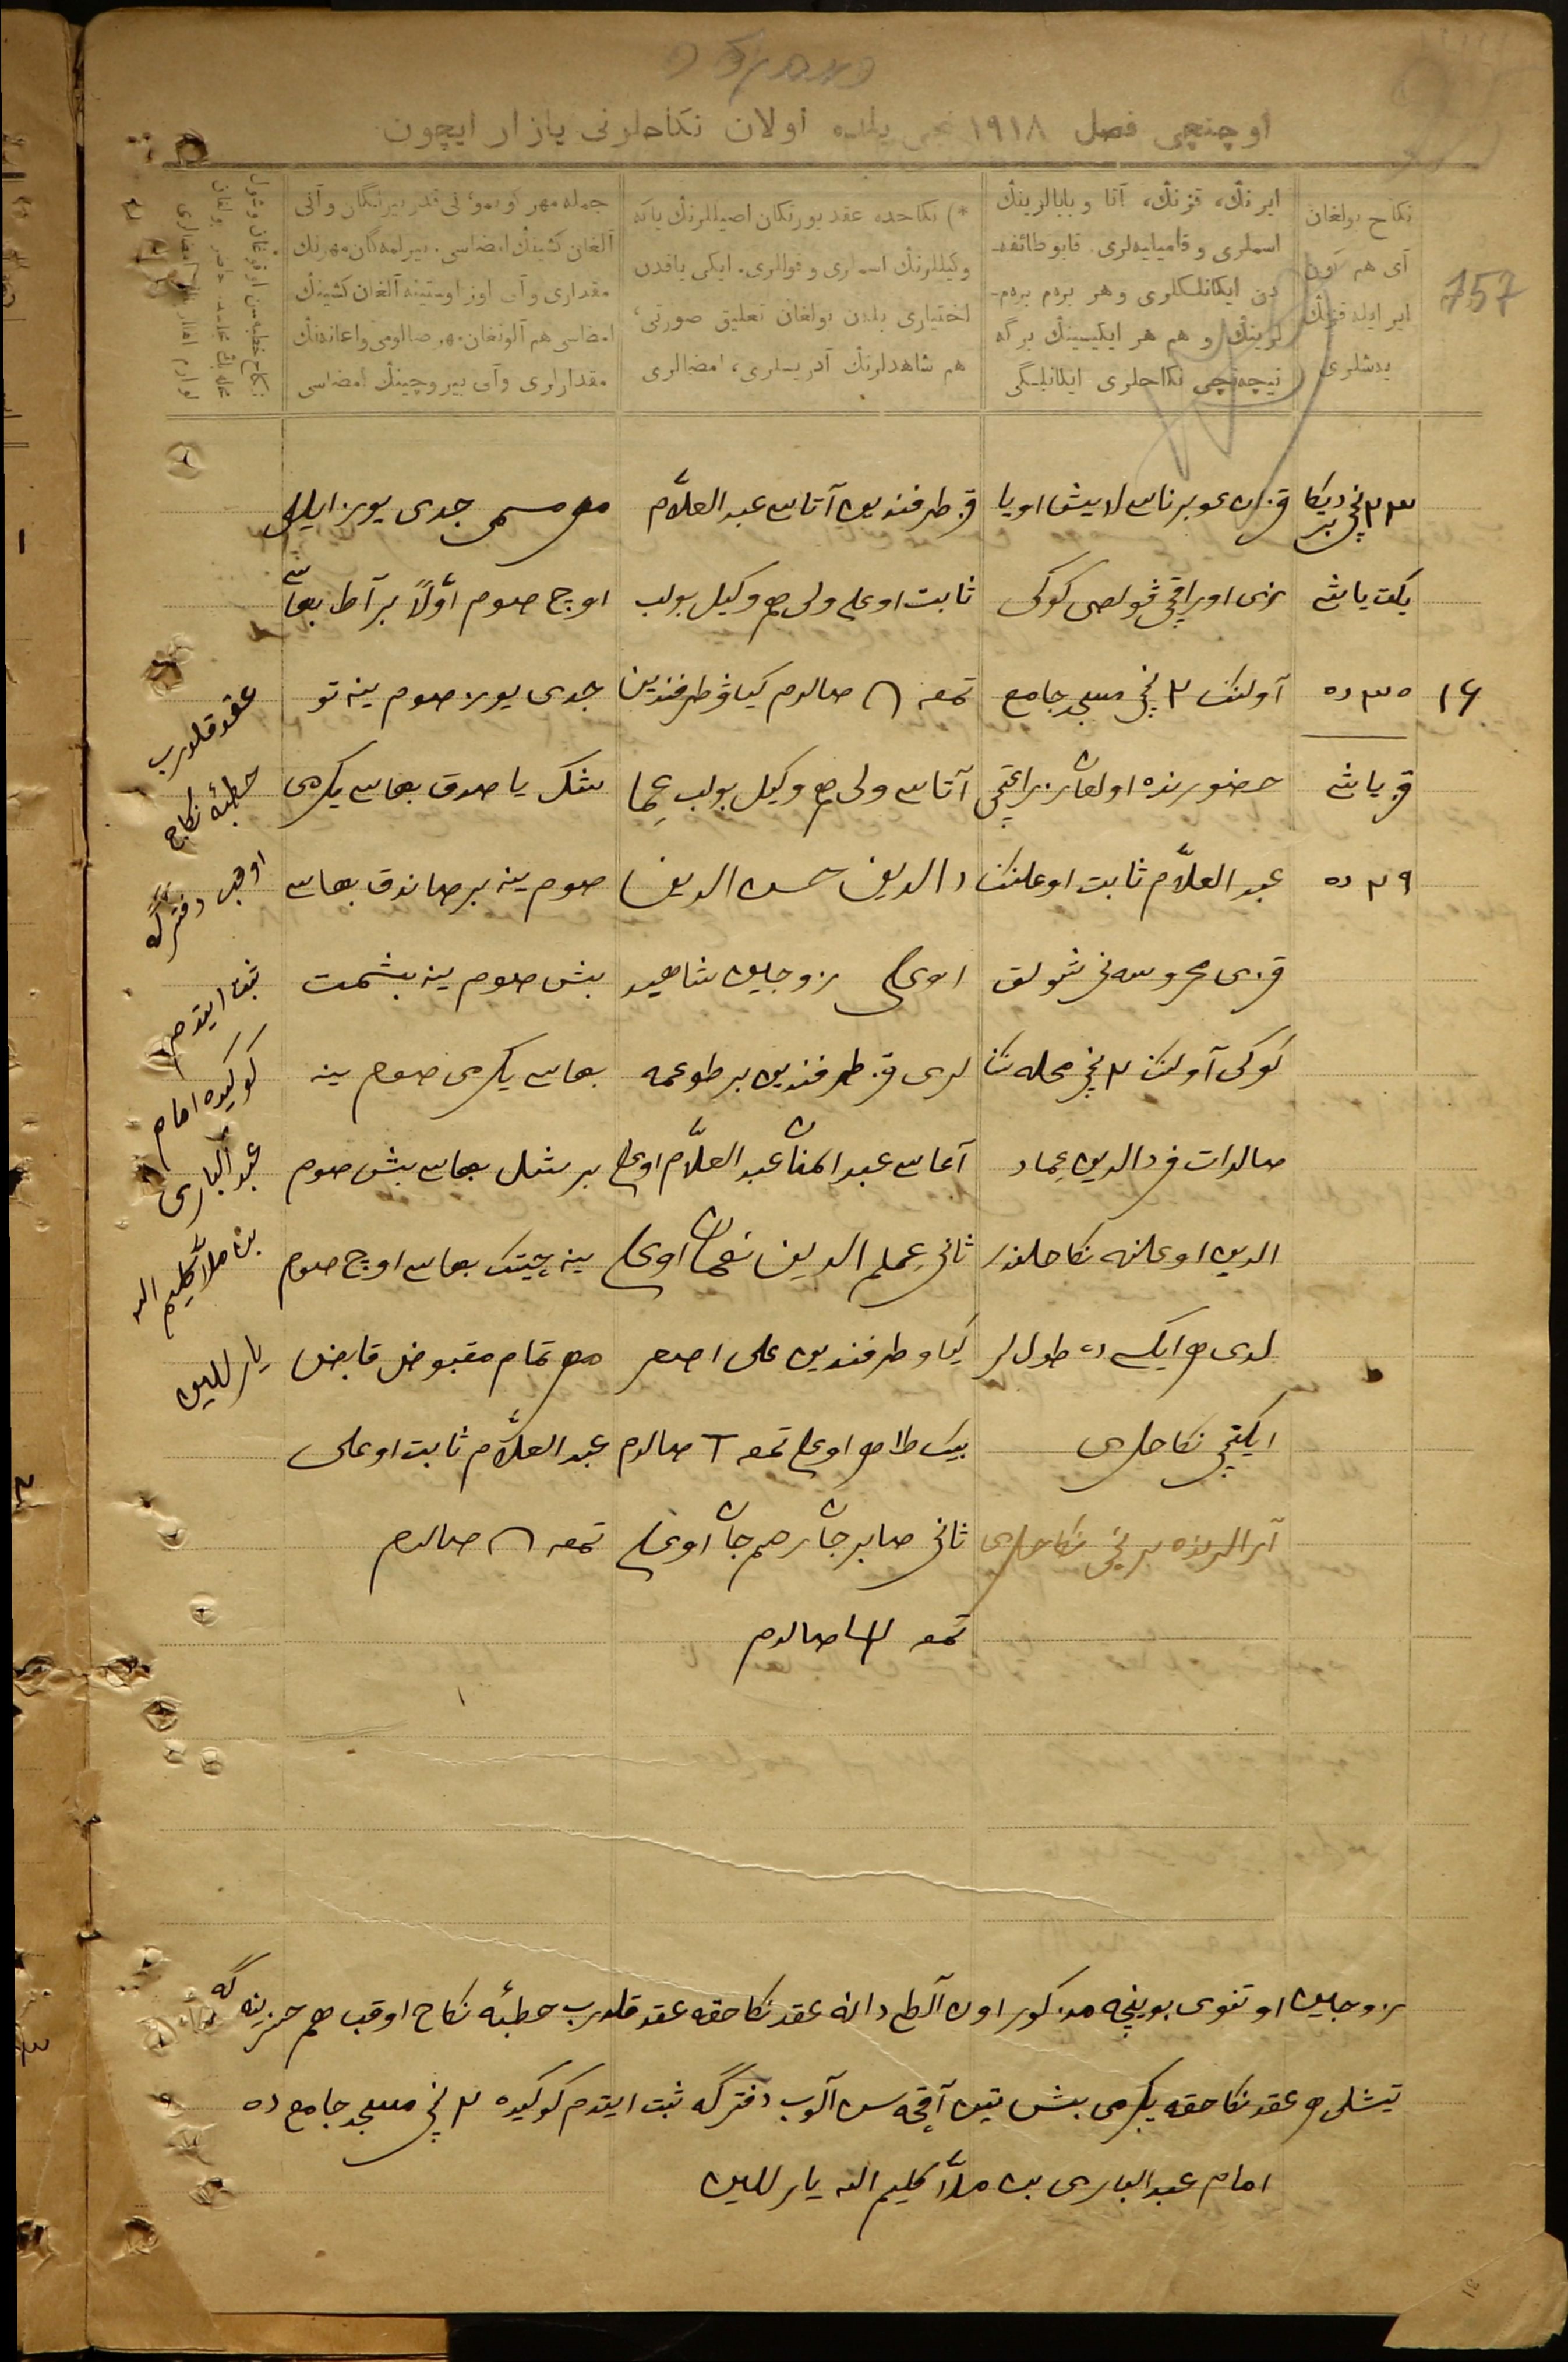 اوچنچی فصل ۱۹۱۸ نچی یلده اولان نکاحلرنی یازار ایچون
757
نکاح بولغان
آی هم کون
ایر ایله قزنڭ
یەشلری
ایرنڭ، قزنڭ، آتا و بابالرینڭ
اسملری و فامیلیەلری. قایو طائفە‌
دن ایکانلکلری و هر بردم بردم-
لرینڭ و هم هر ایکیسینڭ برگه
نیچەنچی نکاحلری ایکانلیگی
*) نکاحده عقد یورتکان اصیللرنڭ یاکه
وکیللرنڭ اسملری و قوللری. ایکی یاقدن
اختیاری بلدن بولغان تعلیق صورتی،
هم شاهدلرنڭ آدریسلری، امضالری
جمله مهر کو بموٴنی قدر بیرلگان وآنی
آلغان کشینڭ امضاسی. بیرلمەگان مهرنڭ
مقداری وآنی اوز اوستینه آلغان کشینڭ
امضاسی هم آلونغان مهر صالومی واعانەنڭ
مقدارلری وآنی بیروچینڭ امضاسی
۲۳ نچی دیکابر
یکت یاشی
۳۵ ده
قز یاشی
۲۹ ده
۱۶
قزان غوبرناسی لایش اویا
زی اوراقچی ڤولصی کوکی
آولنڭ ۲ نچی مسجد جامع
حضورنده اولعان زراعتچی
عبد العلاّم ثابت اوغلینڭ
قزی محروسه نی شولق
کوکی آولنڭ ۲ نچی محله نڭ
صالدات فرد الدین عماد
الدین اوغلنه نکاحلندر
لدی هر ایکسی ده طول لر
ایکنچی نکاحلری
آرالرنده برنچی نکاحلری
قز طرفندین آتاسی عبد العلاّم
ثابت اوغلی ولی هم وکیل بولب
تمغه ∩ صالدم کیاو طرفندین
آتاسی ولی هم وکیل بولب عما
د الدین حسن الدین
اوغلی زوجین شاهید
لری قز طرفندین بر طوغمه
آغاسی عبد المنان عبد العلاّم اوغلی
ثانی علم الدین نعمان اوغلی
کیاو طرفندین علی اصغر
بیک طاهر اوغلی تمغه T صالدم
ثانی صابرجان رحمجان اوغلی
تمغه صالدم
مهر مسمی جدی یوز ایللی
اوچ صوم أوّلاً بر آط بهاسی
جدی یوز صوم ینه تو
شک یاصدق بهاسی یکرمی
صوم ینه بر صاندق بهاسی
بش صوم ینه بشمت
بهاسی یکرمی صوم ینه
بر شل بهاسی بش صوم
ینه چیتک بهاسی اوچ صوم
مهر تمام مقبوض قابض
عبد العلاّم ثابت اوغلی
تمغه ∩ صالدم
عقد قلدرب
خطبهٔ نکاح
اوقب دفترگه
ثبت ایتدم
کوکیده امام
عبد الباری
بن ملاّ کلیم الله
یارللین
زوجین اوتنوی بوینچه مذکور اون آلطی دانه عقد نکاحقه عقد قلدرب خطبهٔ نکاح اوقب هم خزینه گه
تیشلی هر عقد نکاحقه یکرمی بش تین آقچه سن آلوب دفترگه ثبت ایتدم کوکیده ۲ نچی مسجد جامع ده
امام عبد الباری بن ملاّ کلیم الله یارللین